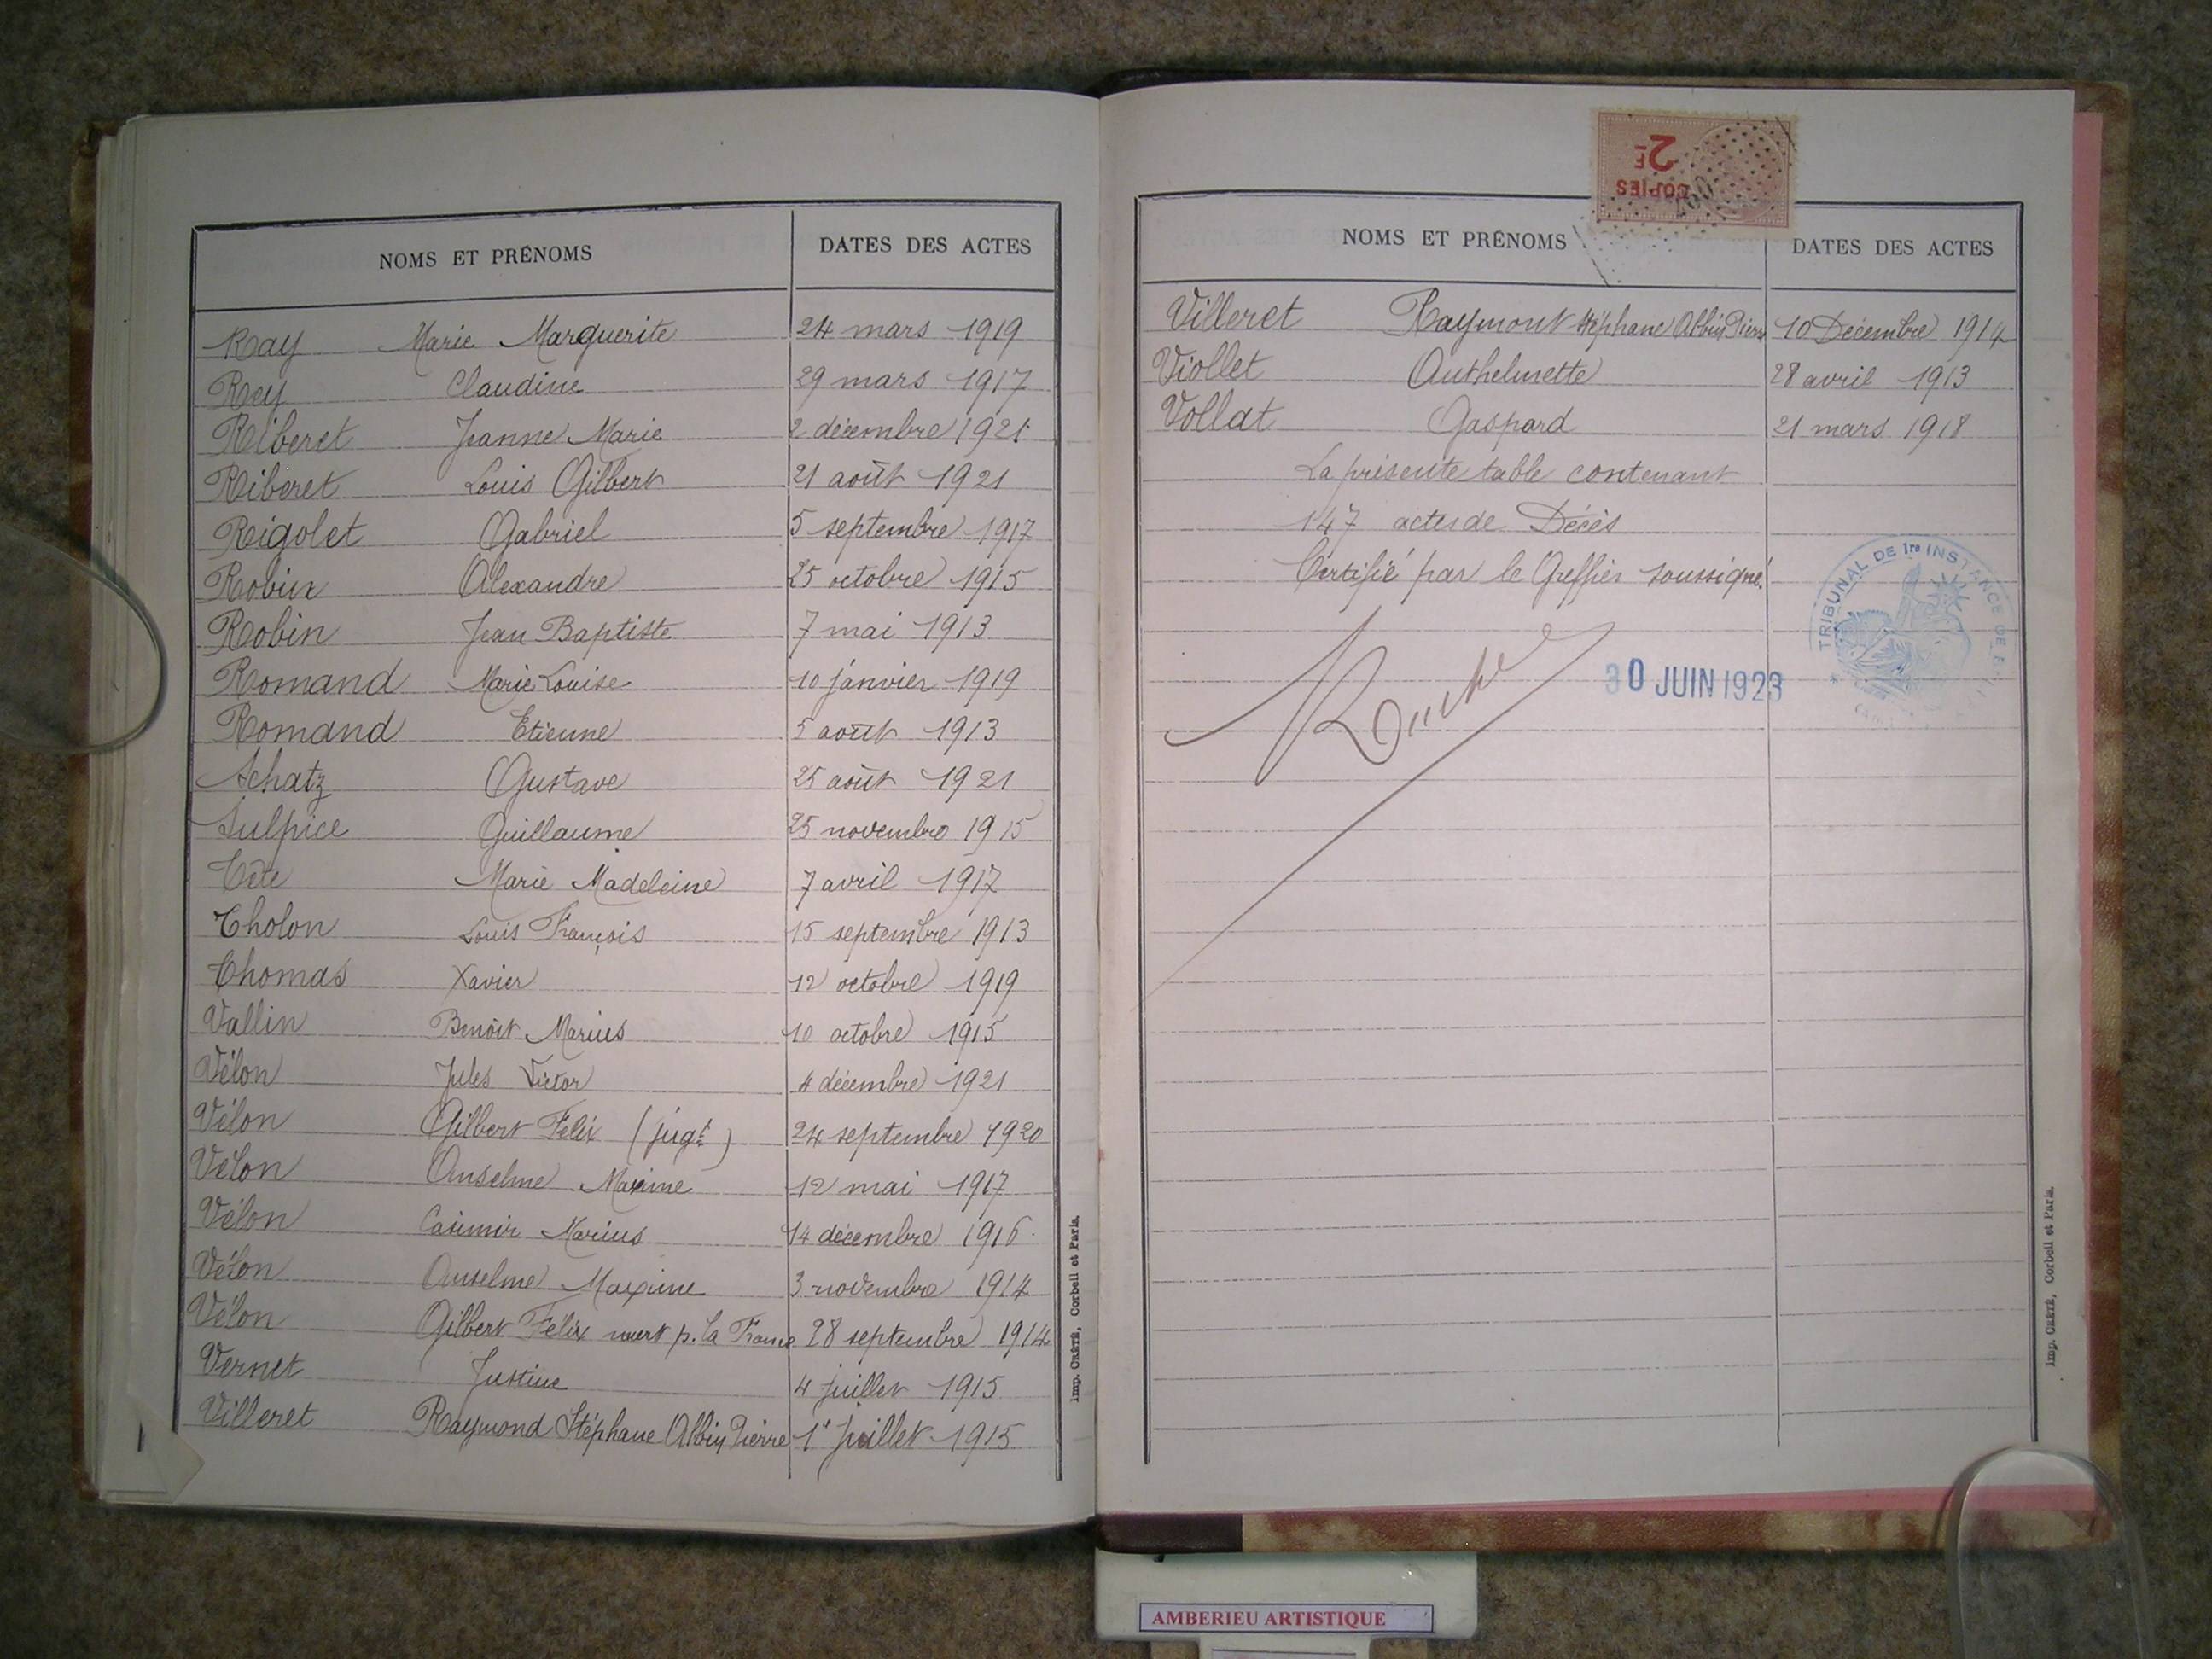 NOMS ET PRÉNOMS DATES DES ACTES
Ray Marie Marguerite 24 mars 1919
Rey Claudine 29 mars 1917
Riberet Jeanne Marie 2 décembre 1921
Riberet Louis Gilbert 21 août 1921
Rigolet Gabriel 5 septembre 1917
Robin Alexandre 25 octobre 1915
Robin Jean Baptiste 7 mai 1913
Romand Marie Louise 10 janvier 1919
Romand Etienne 5 août 1913
Schatz Gustave 25 août 1921
Sulpice Guillaume 25 novembre 1915
Tête Marie Madeleine 7 avril 1917
Tholon Louis François 15 septembre 1913
Thomas Xavier 12 octobre 1919
Vallin Benoît Marius 10 octobre 1915
Vélon Jules Victor 4 décembre 1921
Vélon Gilbert Félix (jugt) 24 septembre 1920
Vélon Anselme Maxime 12 mai 1917
Vélon Casimir Marius 14 décembre 1916
Vélon Anselme Maxime 3 novembre 1914
Vélon Gilbert Félix mort p. la France 28 septembre 1914
Vernet Justine 4 juillet 1915
Villeret Raymond Stéphane Albin Pierre 1er Juillet 1915
Imp. CRÉTÉ, Corbeil et Paris.
COPIES
2F
NOMS ET PRÉNOMS DATES DES ACTES
Villeret Raymont Stéphane Albin Pierre 10 Décembre 1914
Viollet Anthelmette 28 avril 1913
Vollat Gaspard 21 mars 1918
La présente table contenant
147 actes de Décès
Certifié par le Greffier soussigné.
TRIBUNAL DE 1re INSTANCE DE
30 JUIN 1923
Imp. CRÉTÉ, Corbeil et Paris.
AMBERIEU ARTISTIQUE